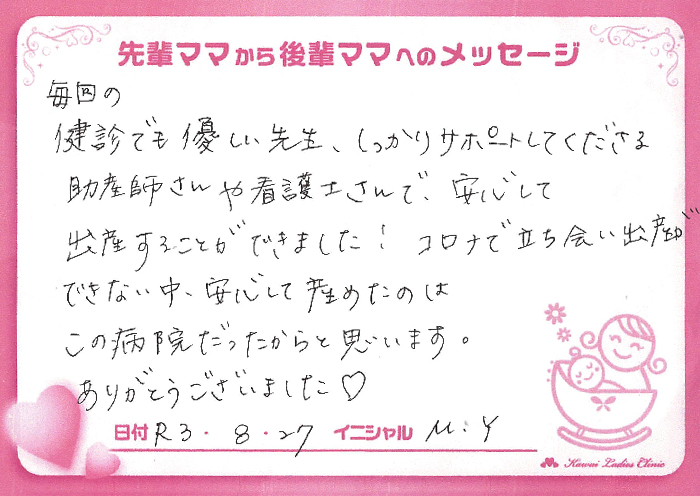 先輩ママから後輩ママへのメッセージ
毎回の
健診でも優しい先生、しっかりサポートしてくださる
助産師さんや看護士さんで、安心して
出産することができました！ コロナで立ち会い出産が
できない中、安心して産めたのは
この病院だったからと思います。
ありがとうございました♡
日付 R3・8・27 イニシャル M.Y
Kawai Ladies Clinic